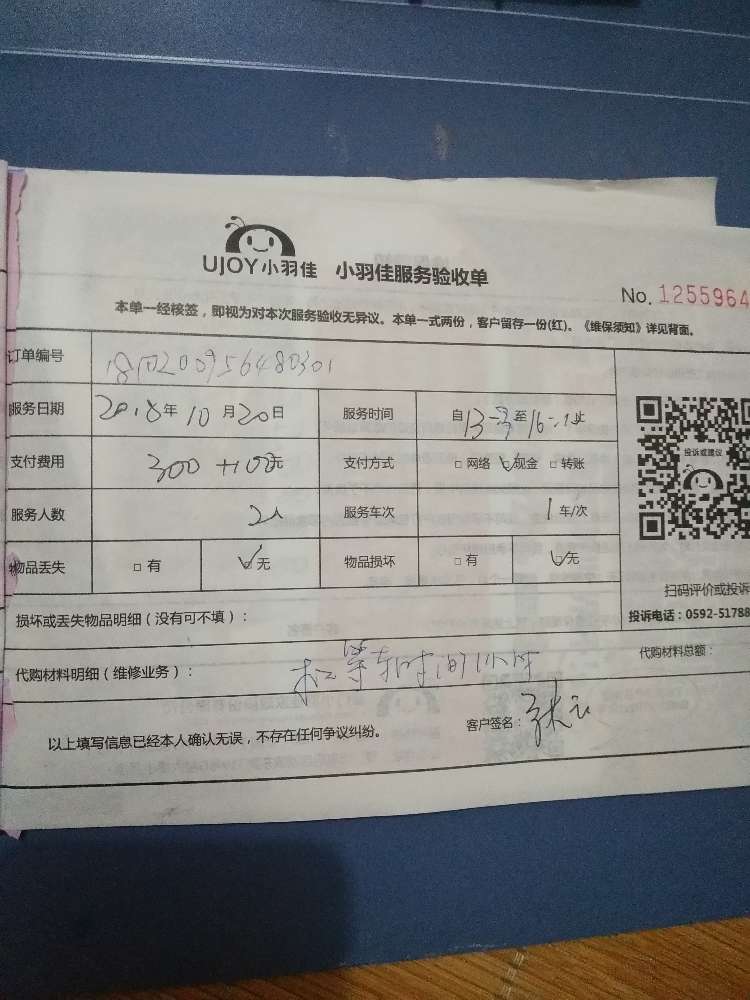 UJOY小羽佳 小羽佳服务验收单
No. 1255964
本单一经核签，即视为对本次服务验收无异议。本单一式两份，客户留存一份(红)。《维保须知》详见背面。
订单编号
服务日期 2018年 10月20日 服务时间 自13 至16 止
支付费用 300 +100元 支付方式 □ 网络 ✓现金 □ 转账
投诉或建议
服务人数 2人 服务车次 1车/次
物品丢失 □ 有 ✓无 物品损坏 □ 有 ✓无
扫码评价或投诉
损坏或丢失物品明细（没有可不填）：
投诉电话：0592-51788
代购材料明细（维修业务）：
代购材料总额：
以上填写信息已经本人确认无误，不存在任何争议纠纷。
客户签名：